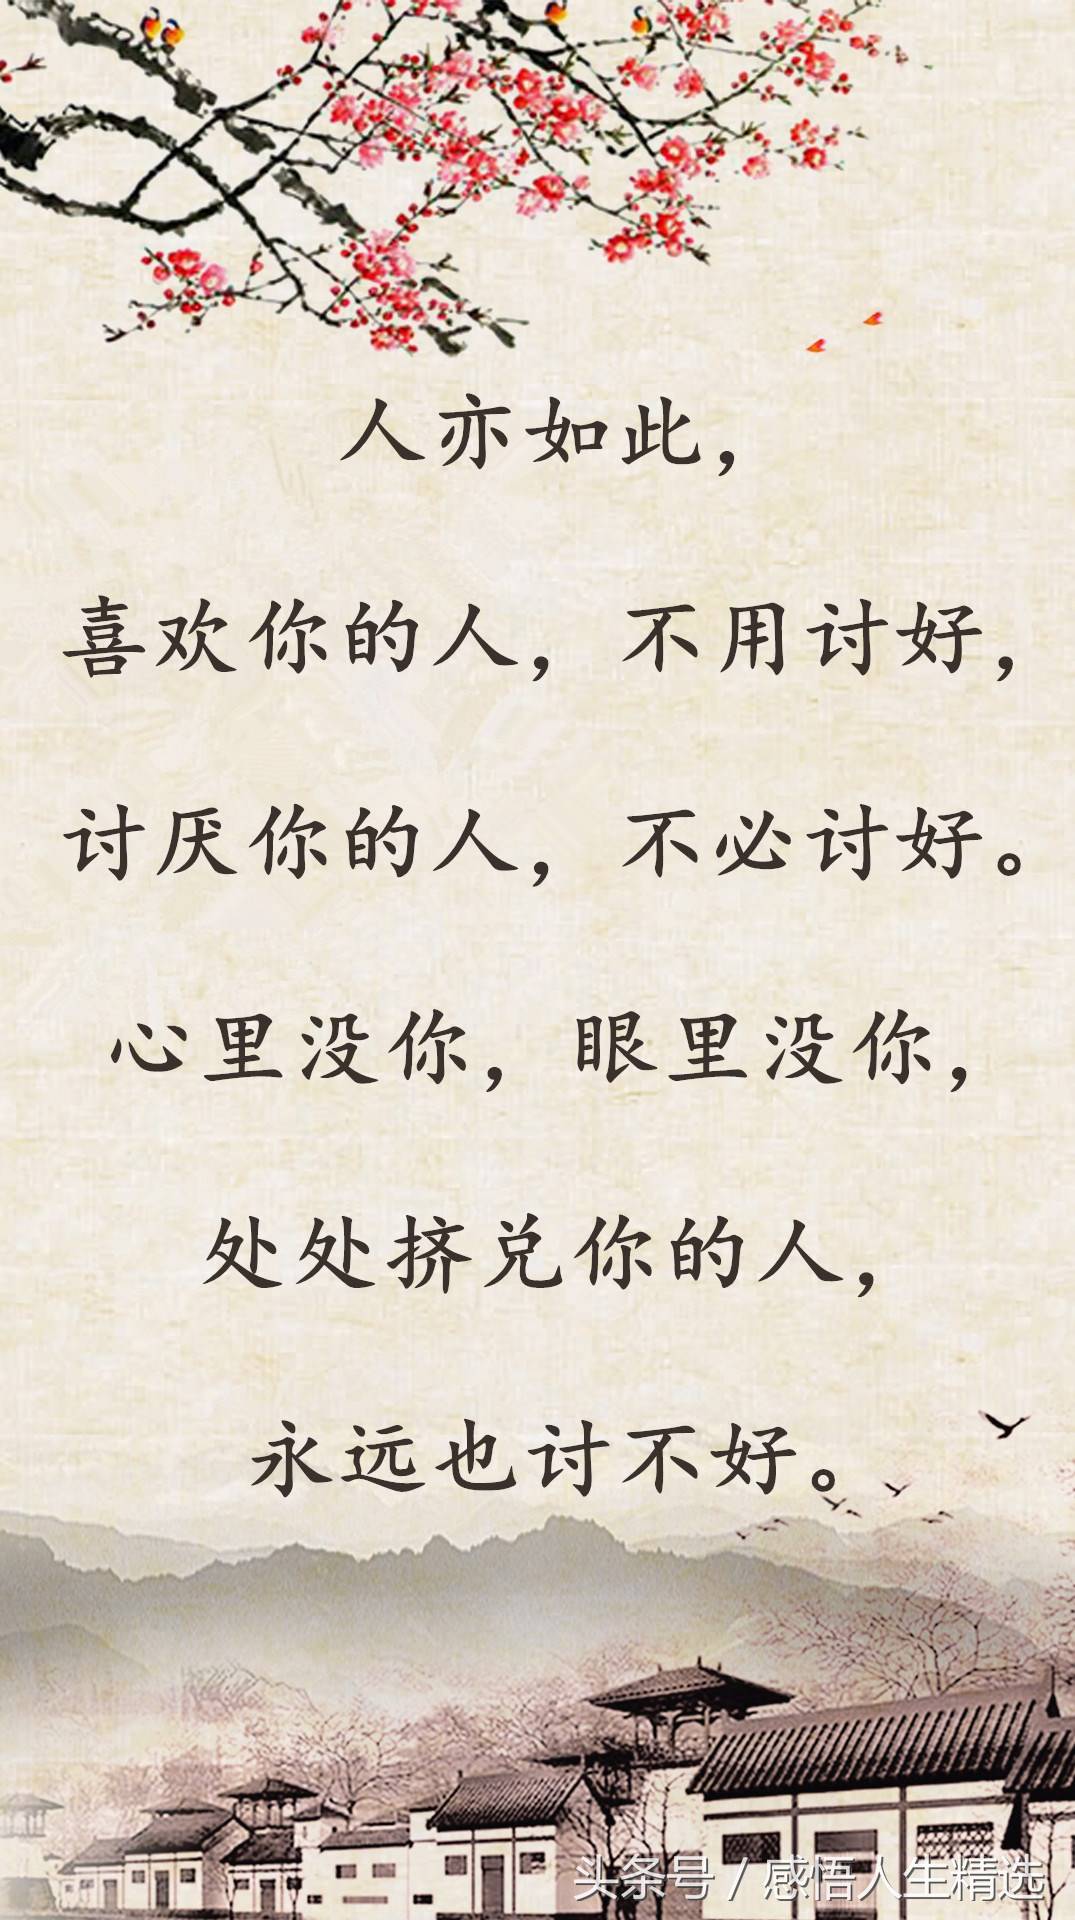 人亦如此，
喜欢你的人，不用讨好，
讨厌你的人，不必讨好。
心里没你，眼里没你，
处处挤兑你的人，
永远也讨不好。
头条号 / 感悟人生精选